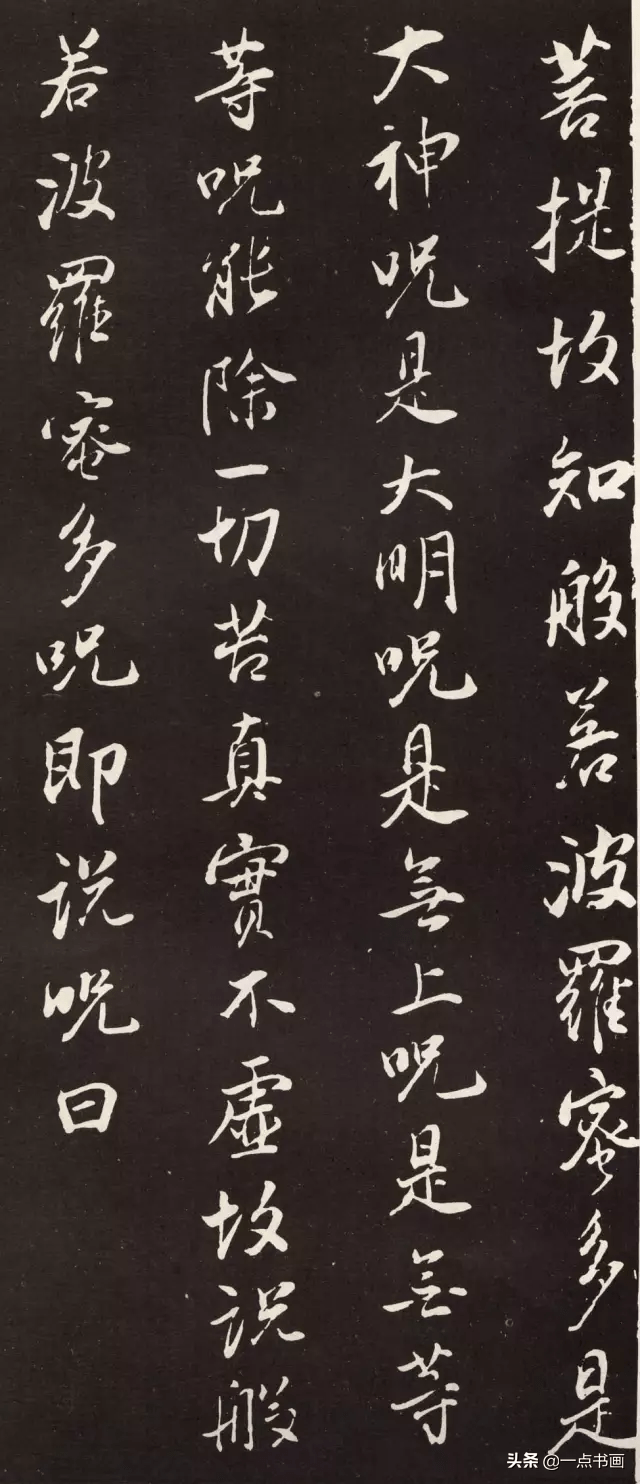 菩提故知般若波羅蜜多是
大神咒是大明咒是無上咒是無等
等咒能除一切苦真實不虛故說般
若波羅蜜多咒即說咒曰
头条 @一点书画